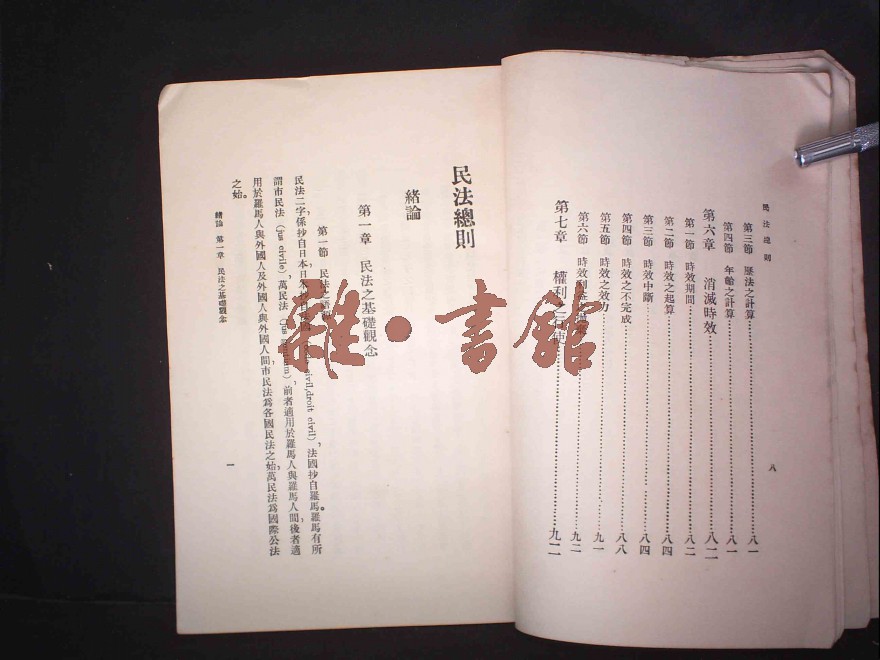 民法總則
八
第三節 曆法之計算 八一
第四節 年齡之計算 八一
第六章 消滅時效 八二
第一節 時效期間 八二
第二節 時效之起算 八四
第三節 時效中斷 八四
第四節 時效之不完成 八八
第五節 時效之效力 九一
第六節 時效利益 九二
第七章 權利之行使 九二
民法總則
緒論
第一章 民法之基礎觀念
第一節 民法之
民法二字,係抄自日本,日本抄自 civil, droit civil),法國抄自羅馬。羅馬有所
謂市民法(jus civile),萬民法(jus),前者適用於羅馬人與羅馬人間,後者適
用於羅馬人與外國人及外國人與外國人間,市民法爲各國民法之始,萬民法爲國際公法
之始。
緒論 第一章 民法之基礎觀念
一
雜·書館